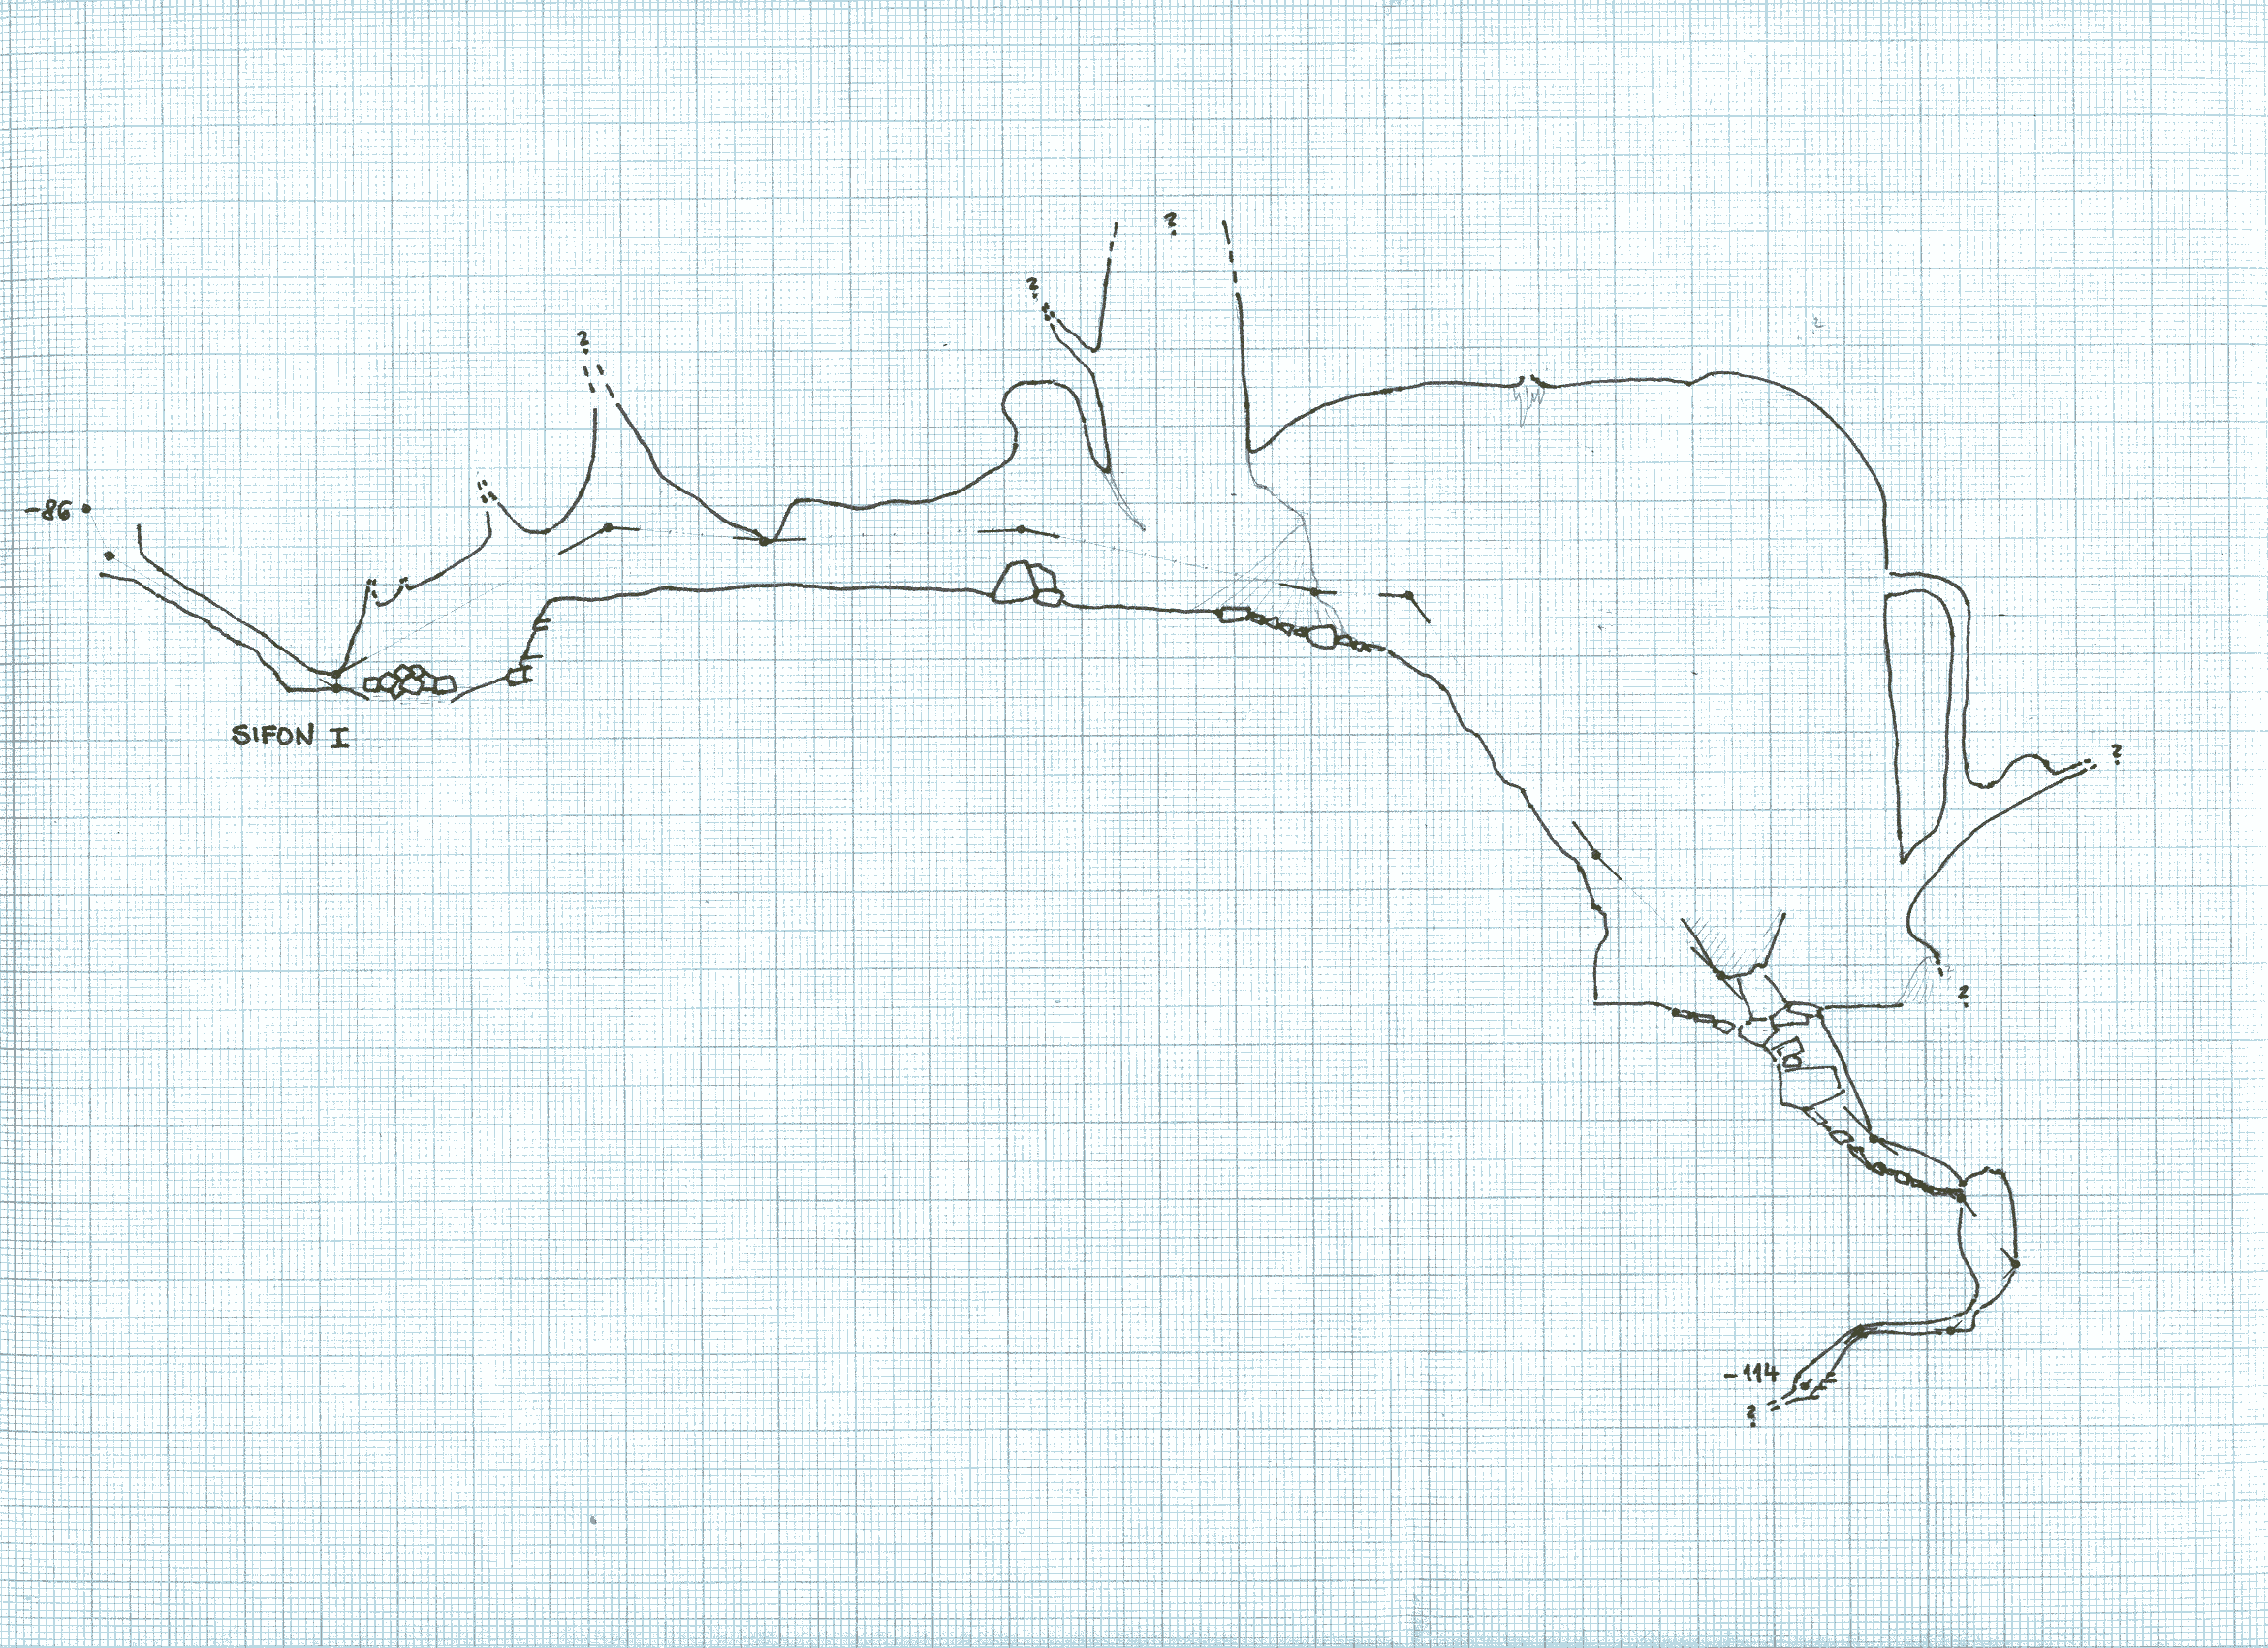 ?
?
?
-86
SIFON I
?
?
-114
?